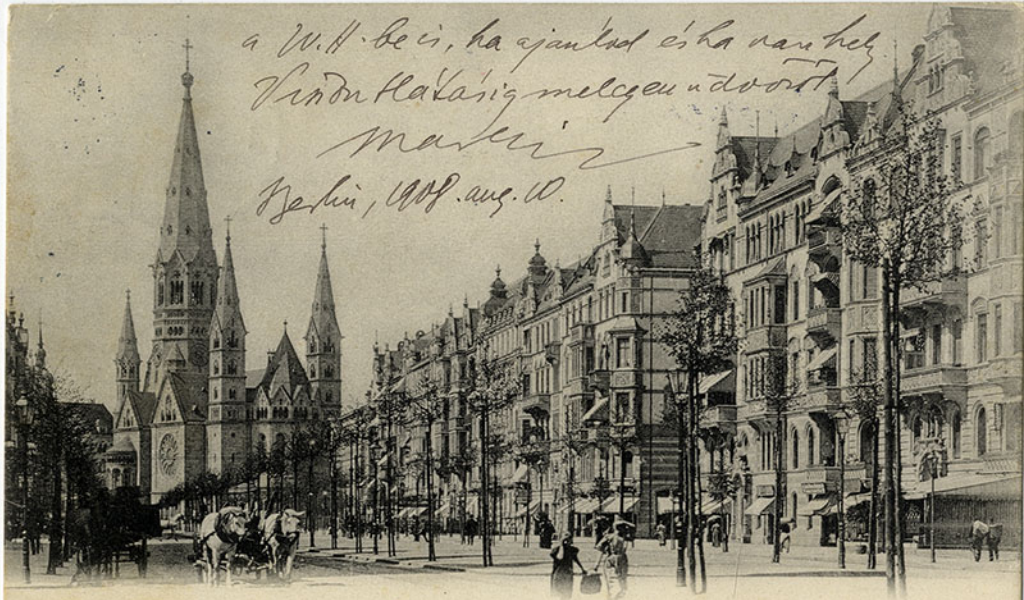 a W. H. be is, ha ajánlod és ha van hely
Viszontlátásig melegen üdvözöl
Berlin, 1908. aug. 10.